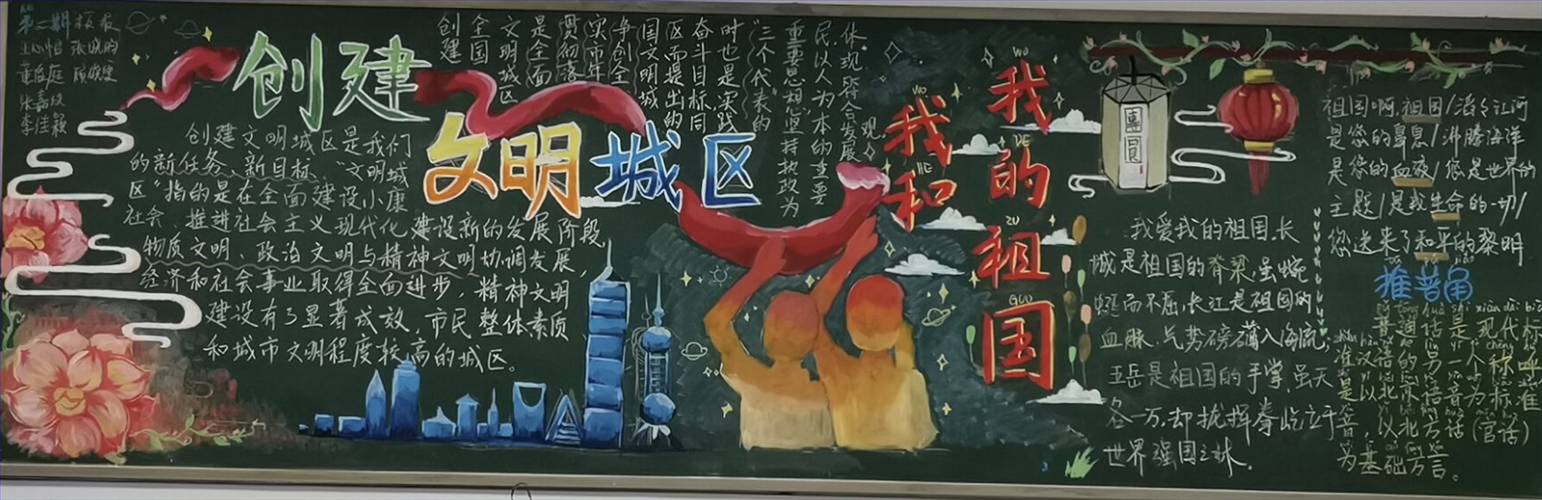 第二期板报
创建
文明城区
创建文明城区是我们
的新任务、新目标。“文明城
区”指的是在全面建设小康
社会，推进社会主义现代化建设新的发展阶段，
物质文明、政治文明与精神文明协调发展，
经济和社会事业取得全面进步，精神文明
建设有了显著成效，市民整体素质
和城市文明程度较高的城区。
创建
全国
文明城区
是全面
贯彻落
实市年
争创全
国文明城
区而提出的
奋斗目标，同
时也是实践
“三个代表”的
重要思想“坚持执政为
民，以人为本的重要
体现，符合发展
观。
WO
我
HE
和
WO
我
DE
的
ZU
祖
GUO
国
團圓
祖国啊，祖国/滔滔江河
是您的鼻息/沸腾海洋
是您的血液/您是世界的
主题/是我生命的一切/
您送来了和平的黎明
我爱我的祖国，长
城是祖国的脊梁，虽蜿
蜒而不屈，长江是祖国的
血脉，气势磅礴入海流，
五岳是祖国的手掌，虽天
各一方，却拢指拳屹立于
世界强国之林。
推普角
普通话是现代标
准汉语的另一个称呼
是以北京语音为标准
音，以北方话（官话）
为基础方言。